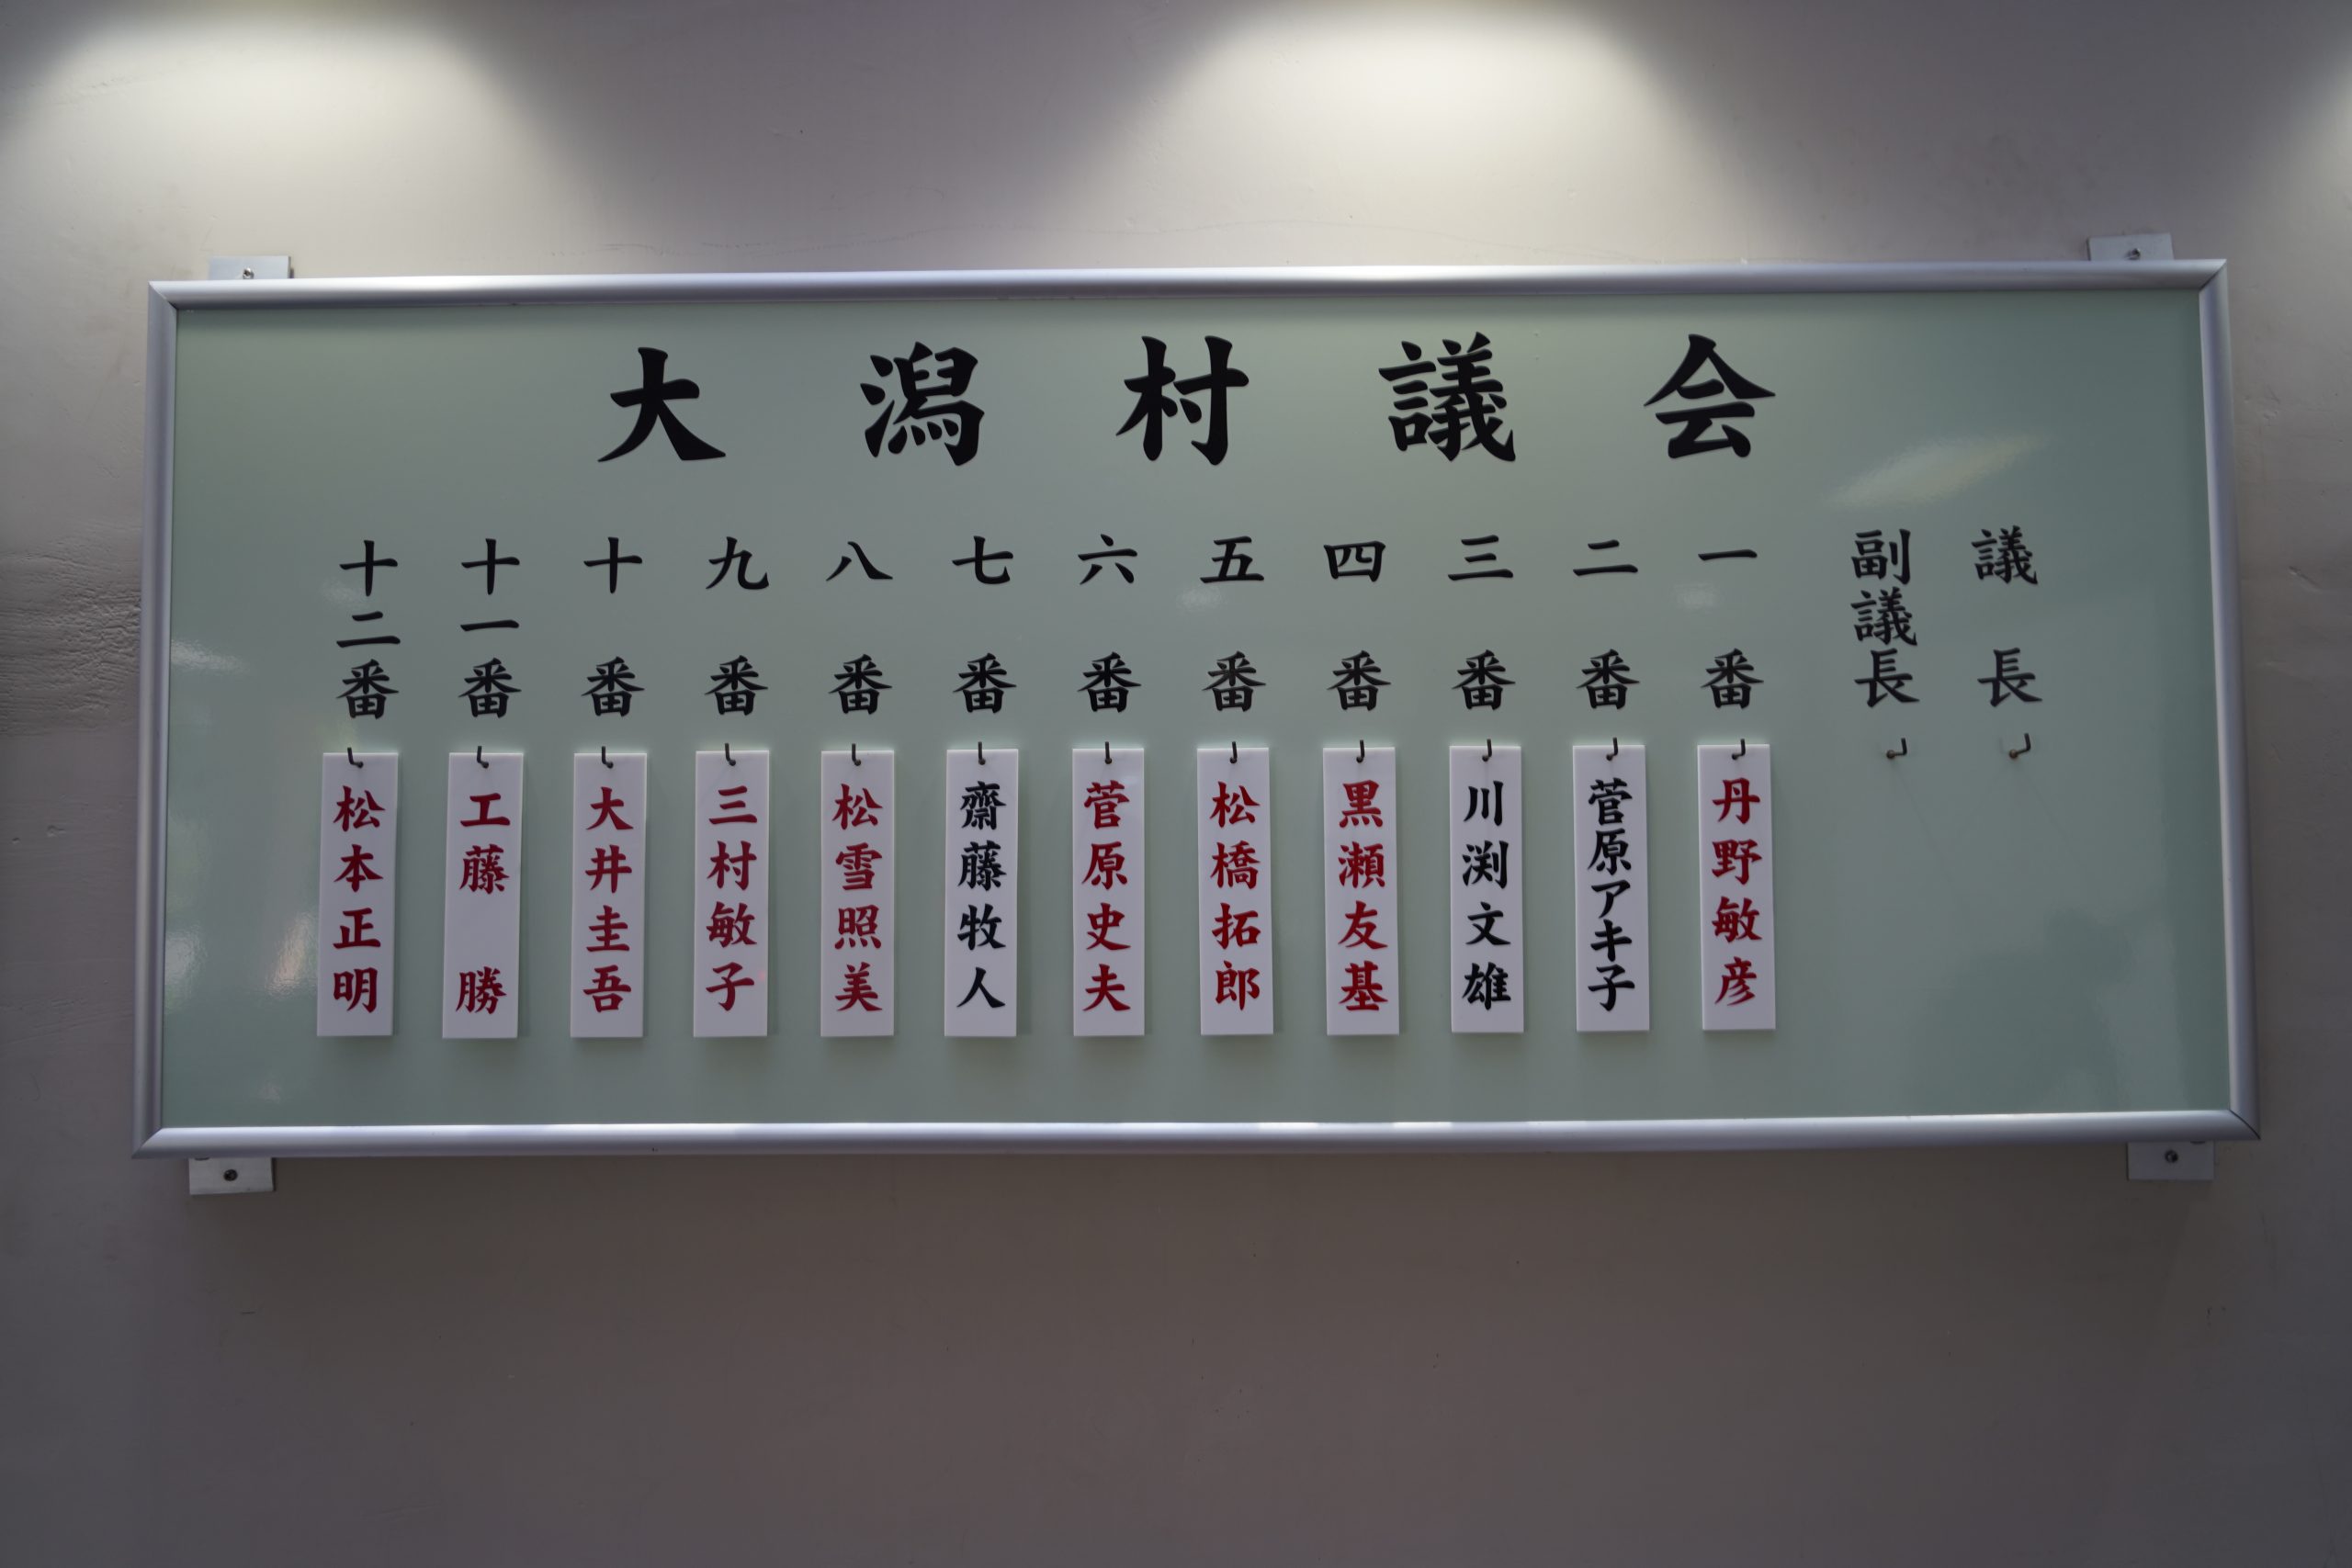 大潟村議会
議長
副議長
一番
丹野敏彦
二番
菅原アキ子
三番
川渕文雄
四番
黒瀬友基
五番
松橋拓郎
六番
菅原史夫
七番
齋藤牧人
八番
松雪照美
九番
三村敏子
十番
大井圭吾
十一番
工藤 勝
十二番
松本正明